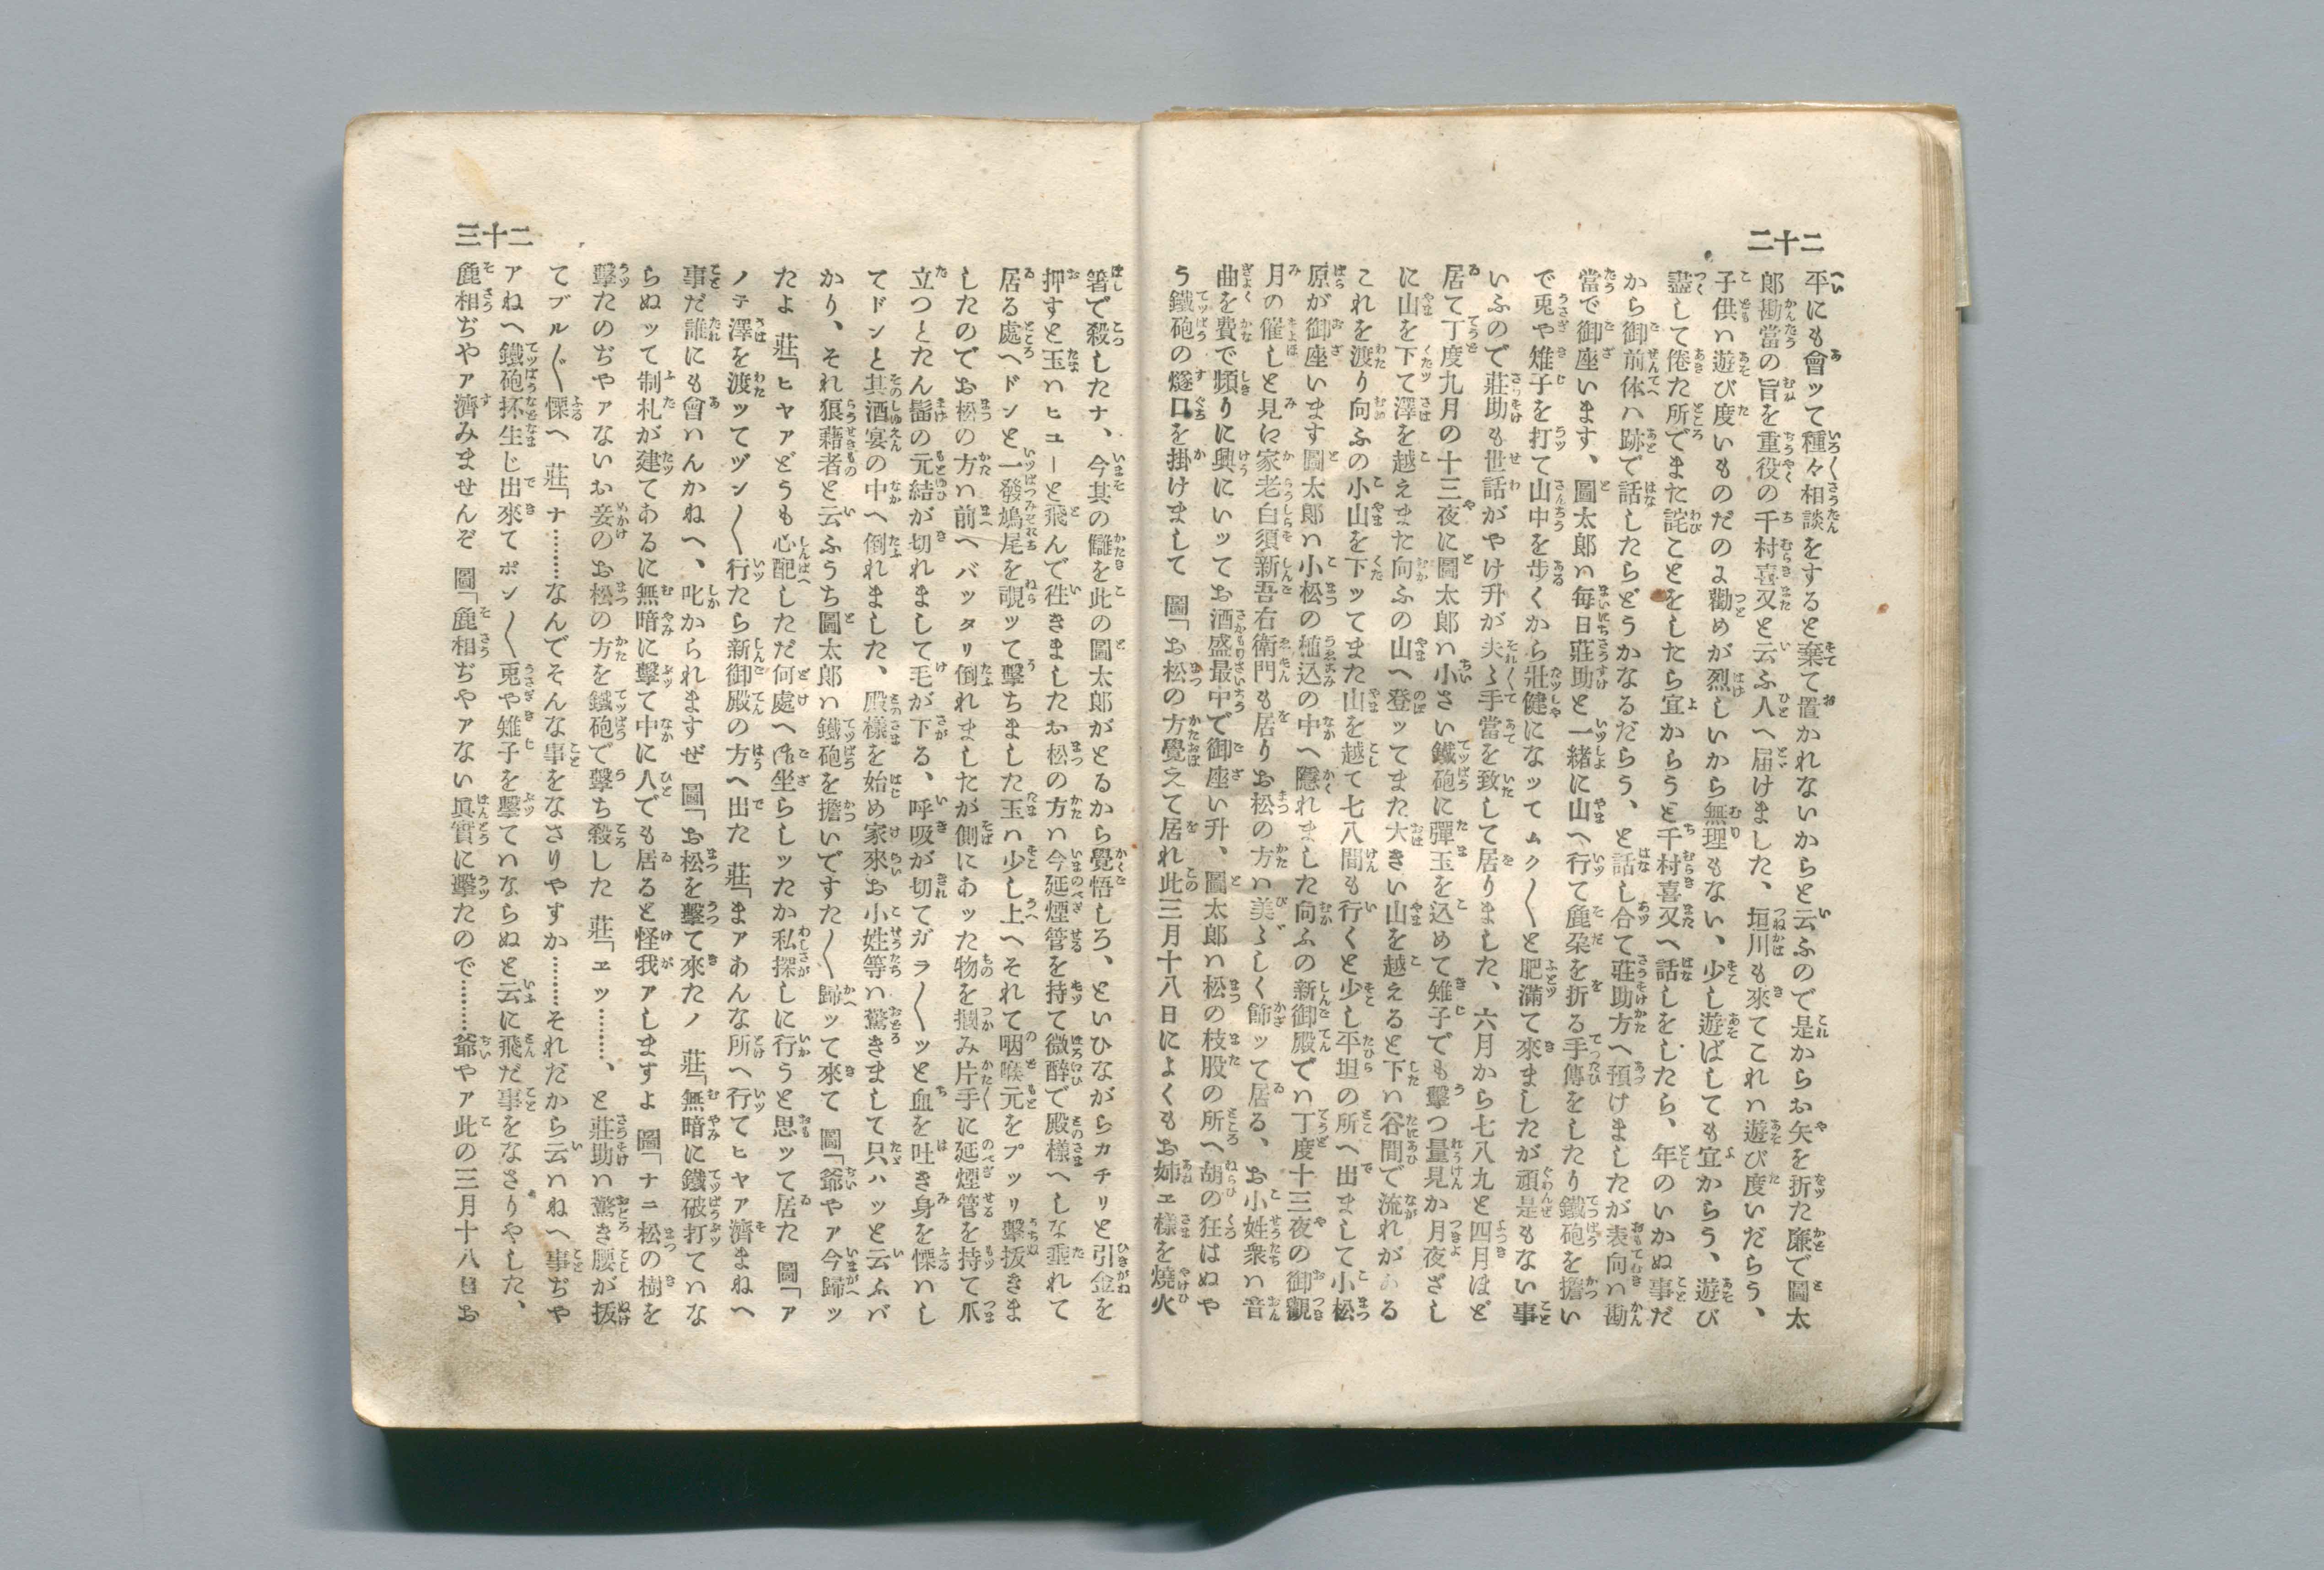 二十二
平にも會ッて種々相談をすると棄て置かれないからと云ふので是からお矢を折た廉で圖太
郎勘當の旨を重役の千村喜又と云ふ人へ届けました、垣川も來てこれハ遊び度いだらう、
子供ハ遊び度いものだのよ勸めが烈しいから無理もない、少し遊ばしても宜からう、遊び
盡して倦た所でまた詫ことをしたら宜からうと千村喜又へ話しをしたら、年のいかぬ事だ
から御前体ハ跡で話したらどうかなるだらう、と話し合て莊助方へ預けましたが表向ハ勘
當で御座います、圖太郎ハ毎日莊助と一緒に山へ行て麁朶を折る手傳をしたり鐵砲を擔い
で兎や雉子を打て山中を歩くから壯健になッてムク〱と肥滿て來ましたが頑是もない事
いふので莊助も世話がやけ升が夫々手當を致して居りました、六月から七八九と四月ほど
居て丁度九月の十三夜に圖太郎ハ小さい鐵砲に彈玉を込めて雉子でも擊つ量見か月夜ざし
に山を下て澤を越えまた向ふの山へ登ッてまた大きい山を越えると下ハ谷間で流れがある
これを渡り向ふの小山を下ッてまた山を越て七八間も行くと少し平坦の所へ出まして小松
原が御座います圖太郎ハ小松の植込の中へ隱れました向ふの新御殿でハ丁度十三夜の御觀
月の催しと見に家老白須新吾右衛門も居りお松の方ハ美々しく飾ッて居る、お小姓衆ハ音
曲を費で頻りに興にいッてお酒盛最中で御座い升、圖太郎ハ松の枝股の所へ胡の狂はぬや
う鐵砲の燧口を掛けまして　圖「お松の方覺えて居れ此三月十八日によくもお姉エ樣を燒火
三十二
箸で殺したナ、今其の讎を此の圖太郎がとるから覺悟しろ、といひながらカチリと引金を
押すと玉ハヒユーと飛んで徃きましたお松の方ハ今延煙管を持て微醉で殿樣へしな垂れて
居る處へドンと一發鳩尾を覗ッて擊ちました玉ハ少し上へそれて咽喉元をプッリ擊拔きま
したのでお松の方ハ前へバッタリ倒れましたが側にあッた物を摑み片手に延煙管を持て爪
立つとたん髷の元結が切れまして毛が下る、呼吸が切てガラ〱ッと血を吐き身を慄ハし
てドンと其酒宴の中へ倒れました、殿樣を始め家來お小姓等ハ驚きまして只ハッと云ふバ
かり、それ狼藉者と云ふうち圖太郎ハ鐵砲を擔いですた〱歸ッて來て　圖「爺やア今歸ッ
たよ　莊「ヒヤアどうも心配しただ何處へ御坐らしッたか私探しに行うと思ッて居た　圖「ア
ノ子澤を渡ッてヅン〱行たら新御殿の方へ出た　莊「まアあんな所へ行てヒヤア濟まねへ
事だ誰にも會ハんかねへ、叱かられますぜ　圖「お松を擊て來たノ　莊「無暗に鐵破打ていな
らぬッて制札が建てあるに無暗に擊て中に人でも居ると怪我アしますよ　圖「ナニ松の樹を
擊たのぢやアないお妾のお松の方を鐵砲で擊ち殺した　莊「エッ………、と莊助ハ驚き腰が拔け
てブル〲慄へ　莊「ナ………なんでそんな事をなさりやすか………それだから云ハねへ事ぢや
アねへ鐵砲抔生じ出來てポン〱兎や雉子を擊てハならぬと云に飛だ事をなさりやした、
麁相ぢやア濟みませんぞ　圖「麁相ぢやアない眞實に擊たので………爺やア此の三月十八日お